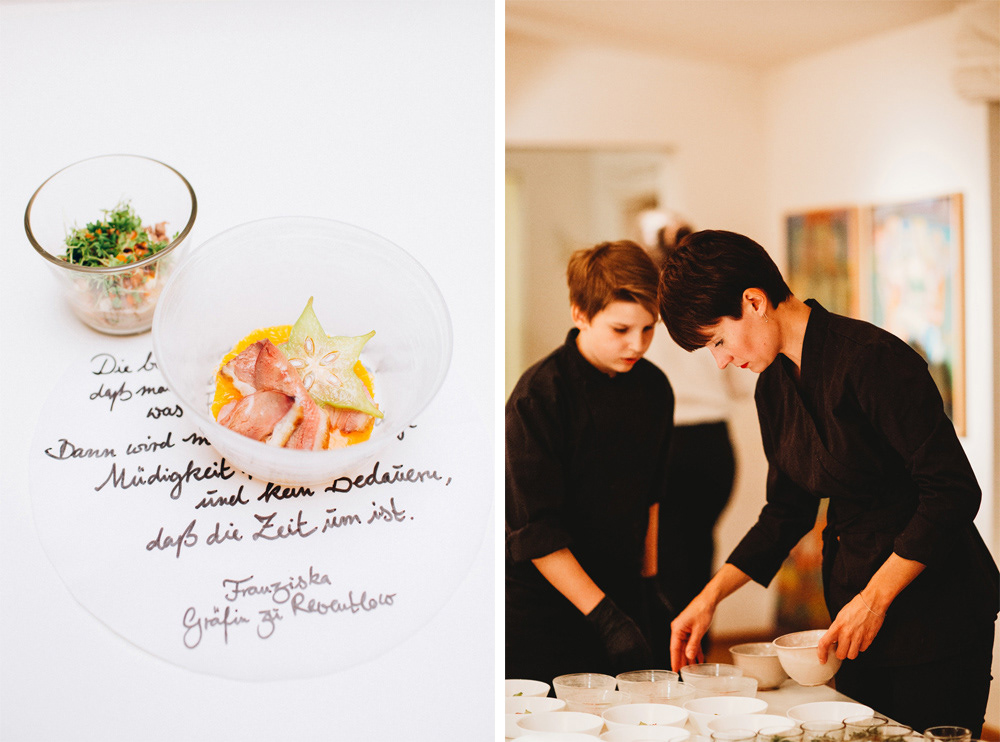 Die
daß
was
Dann wird
Müdigkeit
und kein Bedauern,
daß die Zeit um ist.
Franziska
Gräfin zu Reventlow